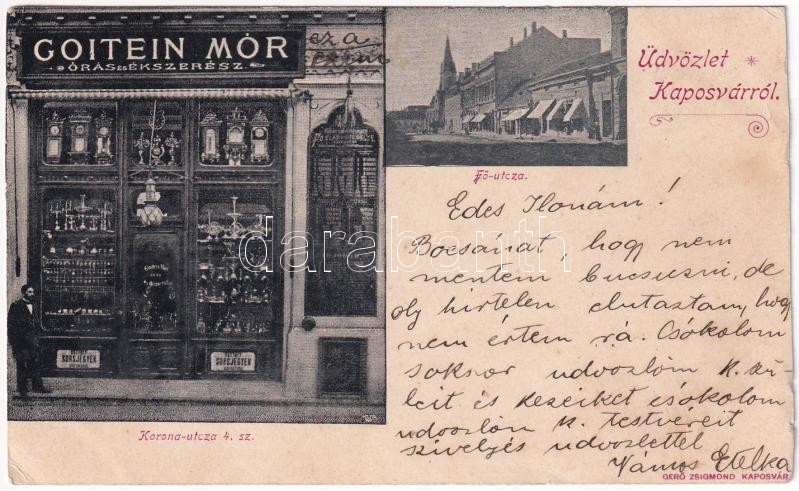 GOITEIN MÓR
ÓRÁS ÉS ÉKSZERÉSZ.
ez a
Üdvözlet
Kaposvárról.
Fő-utcza.
Edes Ilonám!
Bocsánat, hogy nem
mentem bucsuzni, de
oly hirtelen elutaztam, hogy
nem értem rá. Csokolom
sokszor udvozlöm k. szü-
leit és kezeiket csókolom
udvozlöm k. testvéreit
szivelyés udvozlettel
Vámos Etelka
SORSJEGYEK
SORSJEGYEK
Korona-utcza 4. sz.
GERŐ ZSIGMOND KAPOSVÁR
darabanth